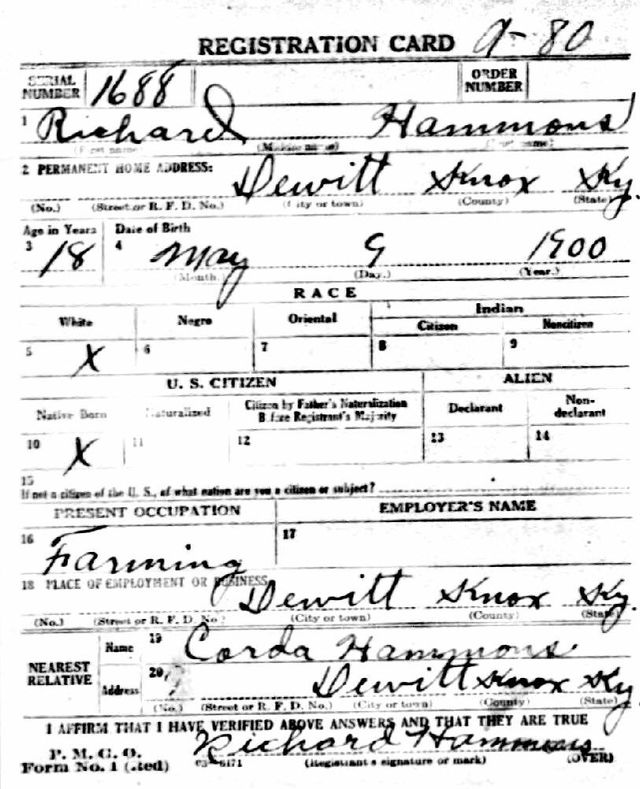 REGISTRATION CARD 9-80
SERIAL NUMBER 1688 ORDER NUMBER
1 Richard Hammons
(First name) (Middle name) (Last name)
2 PERMANENT HOME ADDRESS:
Dewitt Knox Ky.
(No.) (Street or R. F. D. No.) (City or town) (County) (State)
Age in Years Date of Birth
3 18 4 May 9 1900
(Month.) (Day.) (Year.)
RACE
White Negro Oriental Indian
Citizen Noncitizen
5 X 6 7 8 9
U. S. CITIZEN ALIEN
Native Born Naturalized Citizen by Father's Naturalization Before Registrant's Majority Declarant Non-declarant
10 X 11 12 13 14
15
If not a citizen of the U. S., of what nation are you a citizen or subject?
PRESENT OCCUPATION EMPLOYER'S NAME
16 Farming 17
18 PLACE OF EMPLOYMENT OR BUSINESS
Dewitt Knox Ky.
(No.) (Street or R. F. D. No.) (City or town) (County) (State)
NEAREST RELATIVE Name 19 Corda Hammons
Address 20 Dewitt Knox Ky.
(No.) (Street or R. F. D. No.) (City or town) (County) (State)
I AFFIRM THAT I HAVE VERIFIED ABOVE ANSWERS AND THAT THEY ARE TRUE
P. M. G. O.
Form No. 1 (Red) Richard Hammons
(Registrant's signature or mark) (OVER)